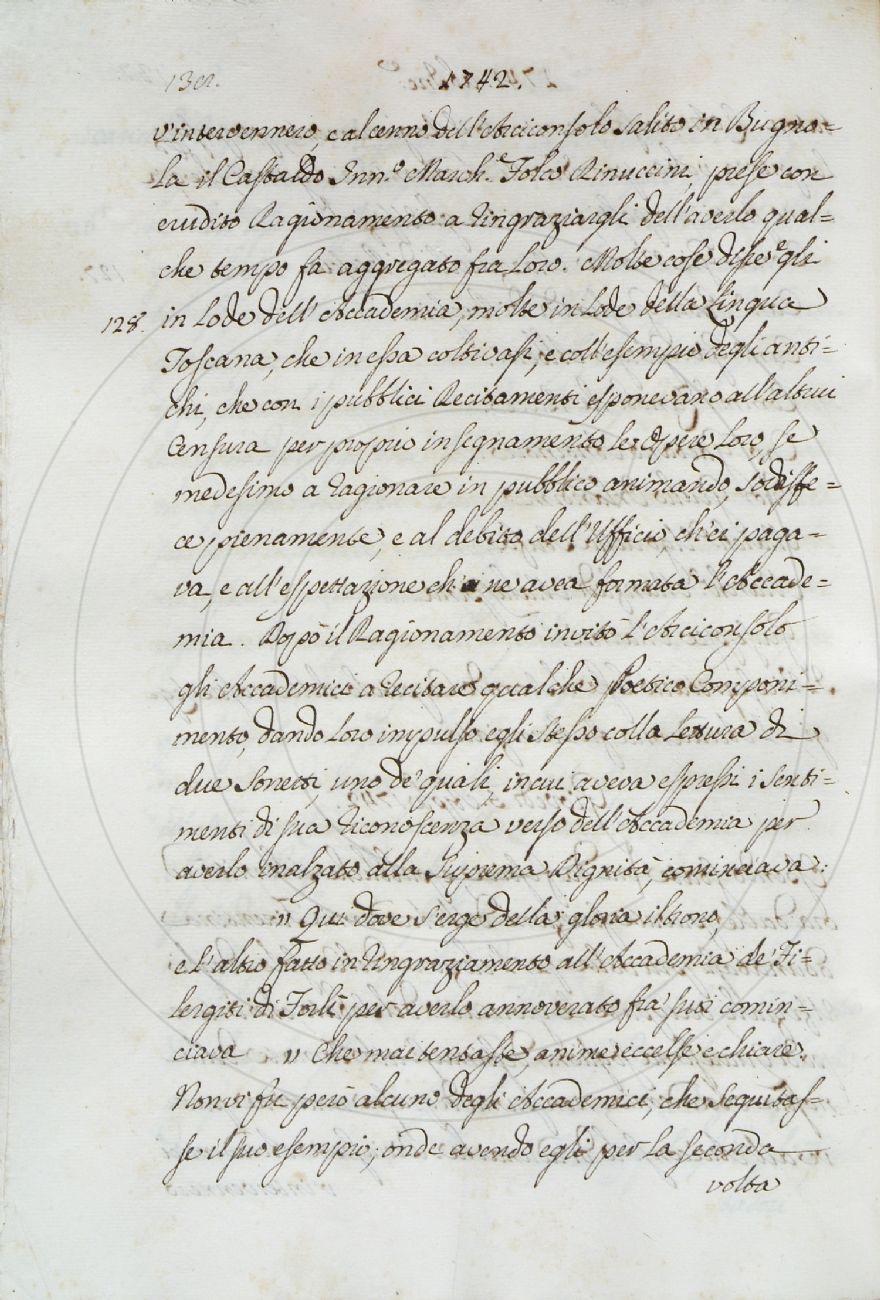 1742.
v'intervennero, e al cenno dell'Arciconsolo salito in Bugno=
la il Castaldo Inn.º March.e Folco Rinuccini, prese con
erudito Ragionamento a ringraziargli dell'averlo qual=
che tempo fa aggregato fra Loro. Molte cose disse egli
128. in Lode dell'Accademia, molte in Lode della Lingua
Toscana, che in essa coltivasi, e coll'esempio degli anti=
chi, che con i pubblici Recitamenti esponevano all'altrui
Censura per proprio insegnamento le Opere Loro, se
medesimo a ragionare in pubblico animando, sodisfe=
ce pienamente, e al debito dell'Uffizio, ch'ei paga=
va, e all'espettazione che ne avea formata l'Accade=
mia. Dopò il Ragionamento invitò l'Arciconsolo
gli Accademici a recitare qualche Poetico Componi=
mento, dando Loro impulso egli stesso colla Lettura di
due Sonetti, uno de' quali, in cui aveva espressi i senti=
menti di sua riconoscenza verso dell'Accademia per
averlo inalzato alla Suprema Dignità, cominciava:
" Qui dove s'erge della gloria il trono,
e l'altro fatto in ringraziamento all'Accademia de' Fi=
lergiti di Forlì per averlo annoverato fra' suoi comin=
ciava " Che mai tentaste, anime eccelse e chiare.
Non vi fu però alcuno degli Accademici, che seguitas=
se il suo esempio; onde avendo egli per la seconda
volta